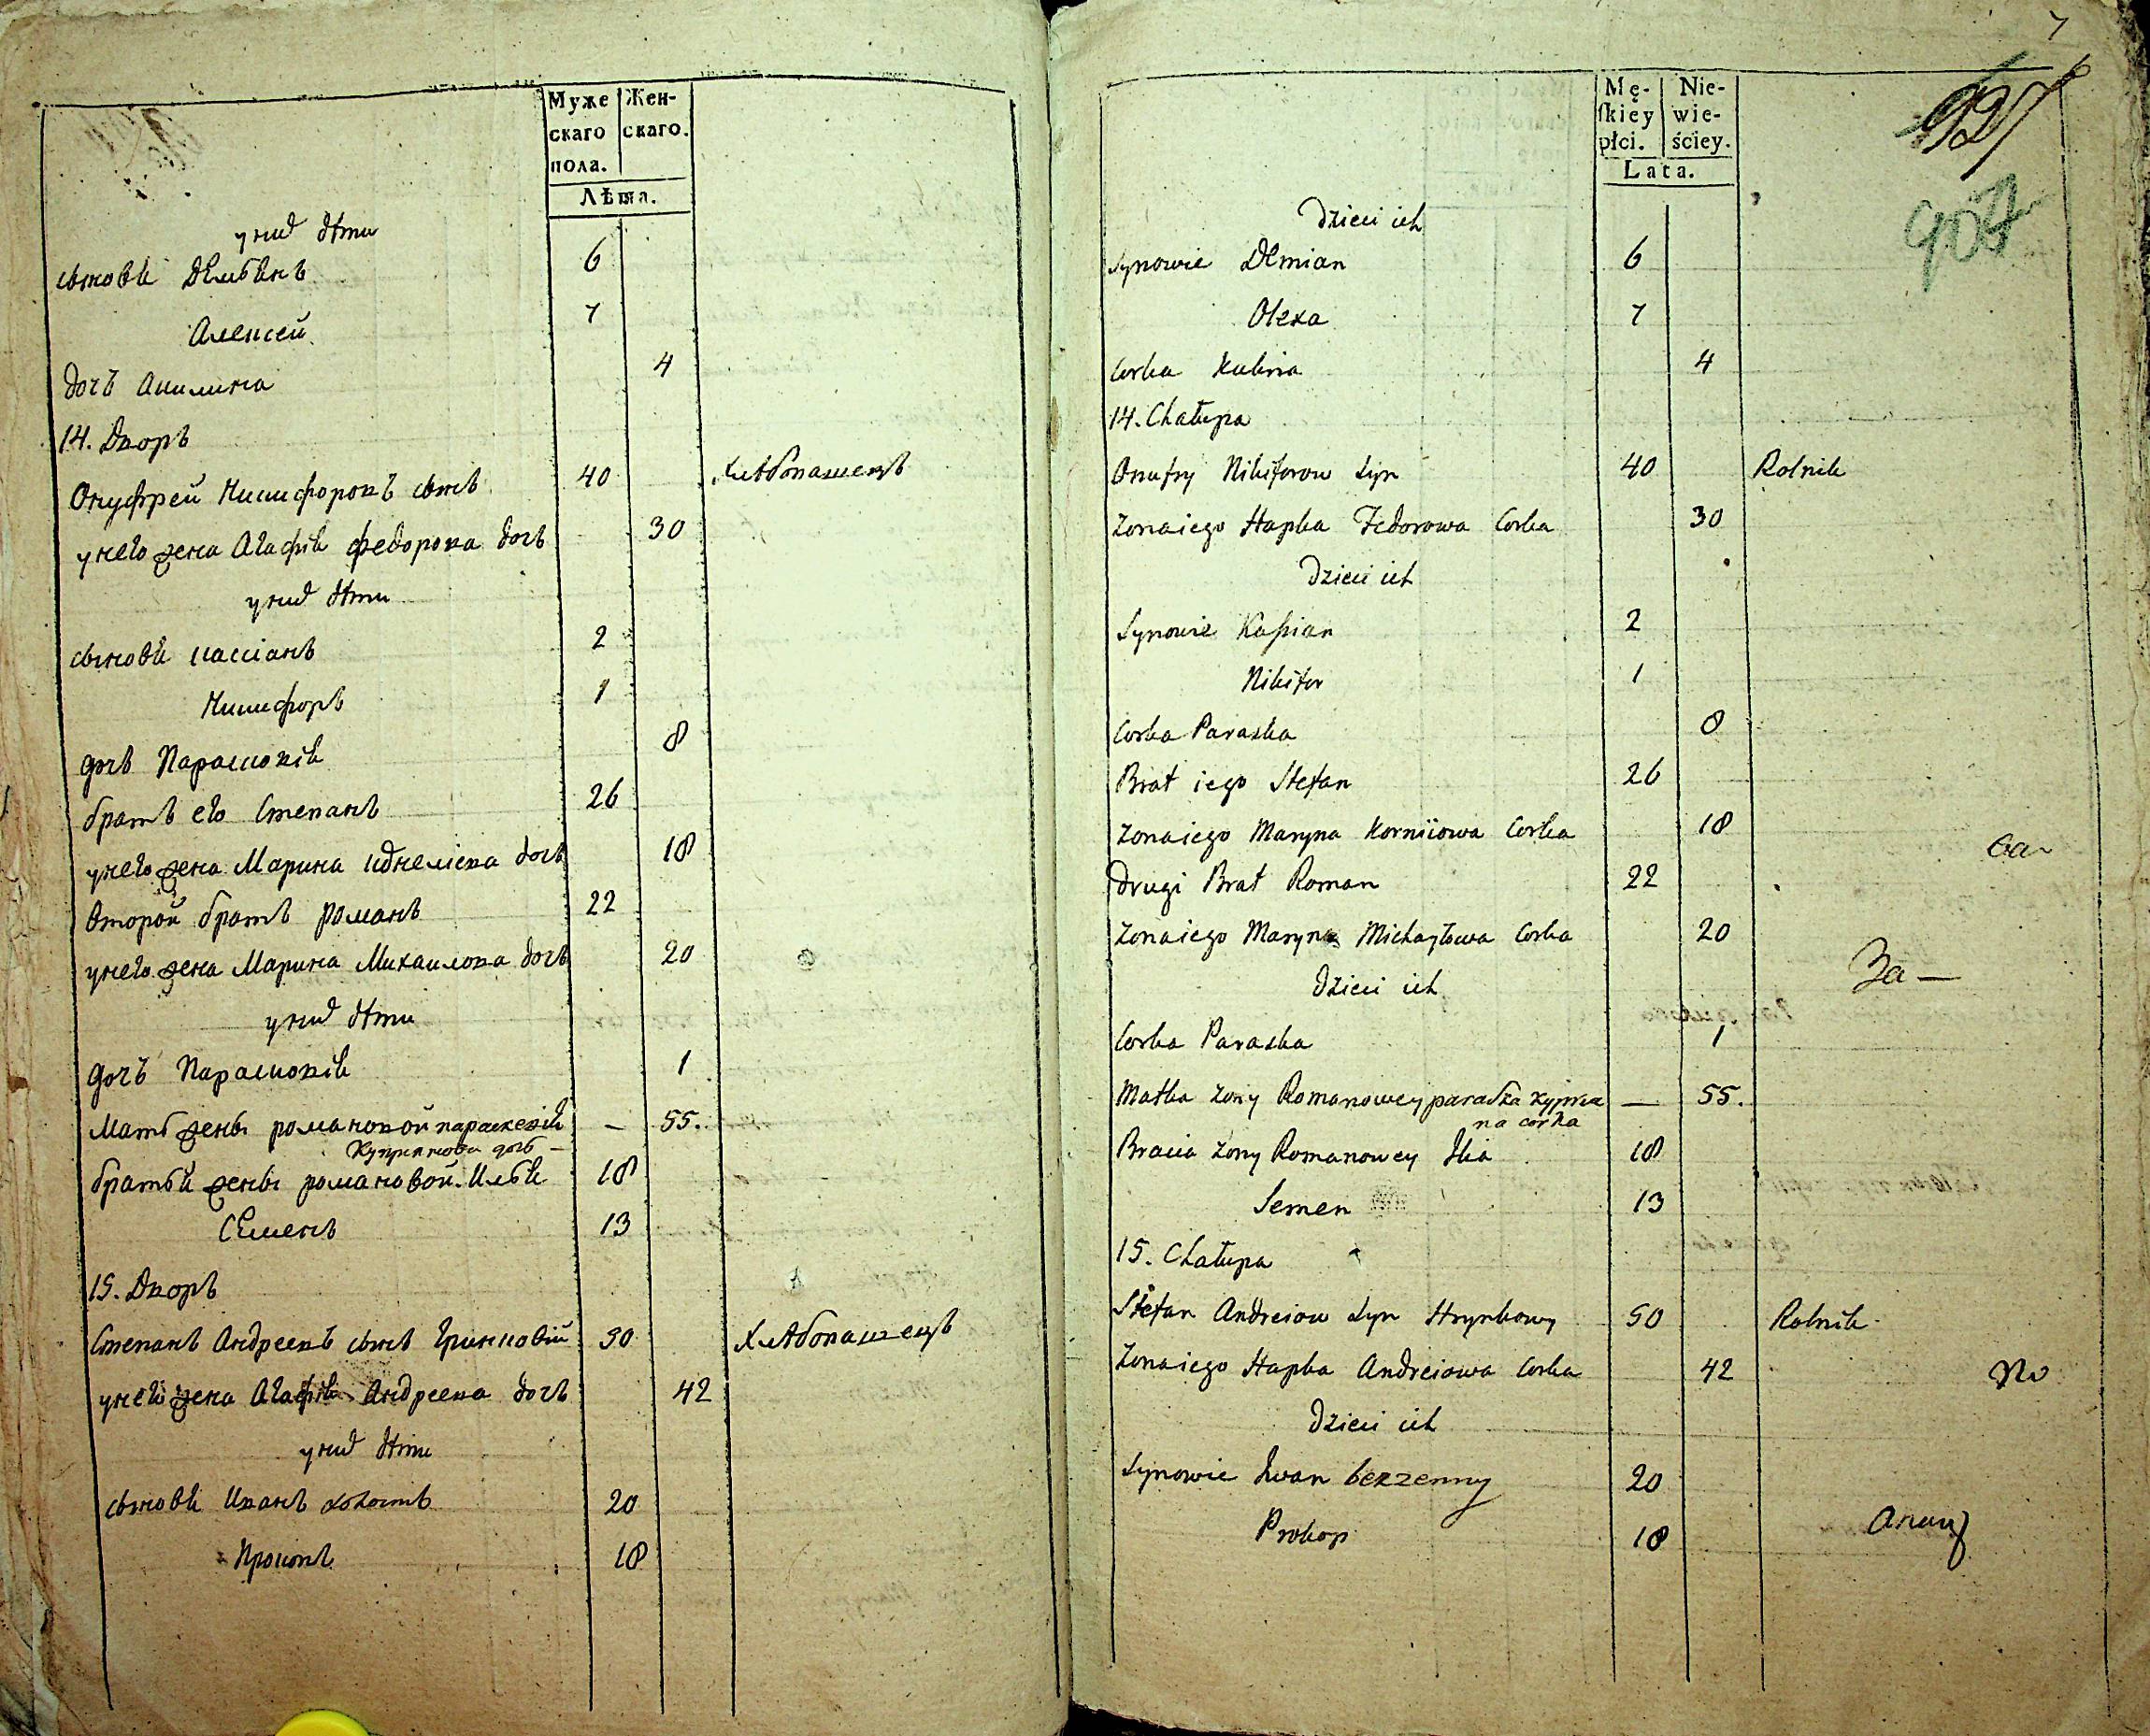 Муже
скаго
пола.
Жен-
скаго.
Лѣта.
у нихъ дѣти
сыновья Демьянъ 6
Алексей 7
дочь Акилина 4
14. Дворъ
Онуфрей Никифоровъ сынъ 40 хлѣбопашецъ
у него жена Агафія Федорова дочь 30
у нихъ дѣти
сыновья Кассіанъ 2
Никифоръ 1
дочь Парасковія 8
братъ его Степанъ 26
у него жена Марина дочь 18
второй братъ Романъ 22
у него жена Марина Михаилова дочь 20
у нихъ дѣти
дочь Парасковія 1
Мать жены романовой параскевія — 55.
Куприянова дочь —
братья жены романовой Илья 18
Семенъ 13
15. Дворъ
Степанъ Андреевъ сынъ Гринковій 50 хлѣбопашецъ
у него жена Агафія Андреева дочь 42
у нихъ дѣти
сыновья Иванъ холостъ 20
Прокопъ 18
7
927
907
Mę-
skiey
płci.
Nie-
wie-
ściey.
Lata.
Dzieci ich
Synowie Demian 6
Olexa 7
Corka Kulina 4
14. Chałupa
Onufry Nikiforow Syn 40 Rolnik
Zona iego Hapka Fedorowa Corka 30
Dzieci ich
Synowie Kassian 2
Nikifor 1
Corka Paraska 8
Brat iego Stefan 26
Zona iego Maryna Korniiowa Corka 18
Drugi Brat Roman 22
Zona iego Maryna Michayłowa Corka 20
За —
Dzieci ich
Corka Paraska 1
Matka Zony Romanowey paraska Kypria — 55.
na corka
Bracia Zony Romanowey Ilia 18
Semen 13
15. Chałupa
Stefan Andreiow Syn Hrynkowy 50 Rolnik
Zona iego Hapka Andreiowa Corka 42
Dzieci ich
Synowie Iwan bezzenny 20
Prokop 18